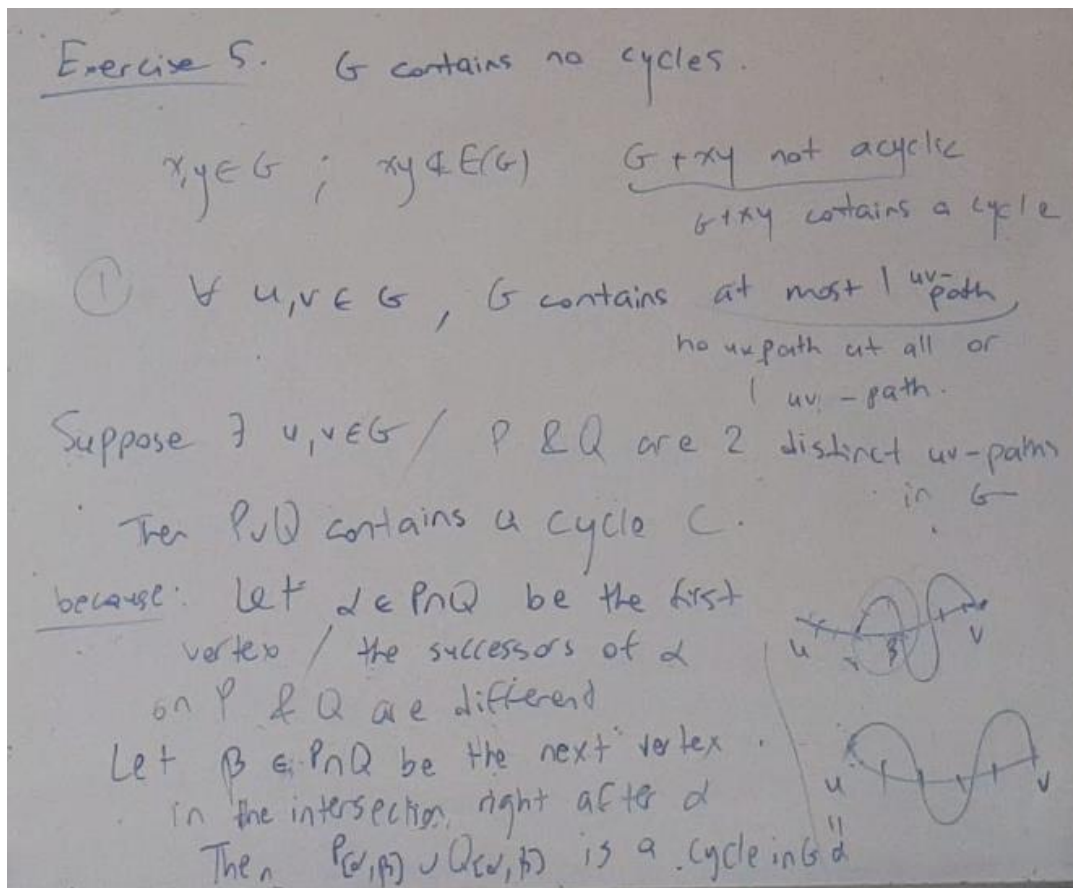 Exercise 5. G contains no cycles.
x,y ∈ G ; xy ∉ E(G) G + xy not acyclic
G+xy contains a cycle
① ∀ u,v ∈ G, G contains at most 1 uv-path,
no ux path at all or
1 uv - path.
Suppose ∃ u,v ∈ G / P & Q are 2 distinct uv-paths
in G
Then P∪Q contains a cycle C.
because: Let α ∈ P∩Q be the first
vertex / the successors of α
on P & Q are differend
Let β ∈ P∩Q be the next vertex
in the intersection, right after α
Then P[α,β] ∪ Q[α,β] is a cycle in G
u β v
u v
"
α